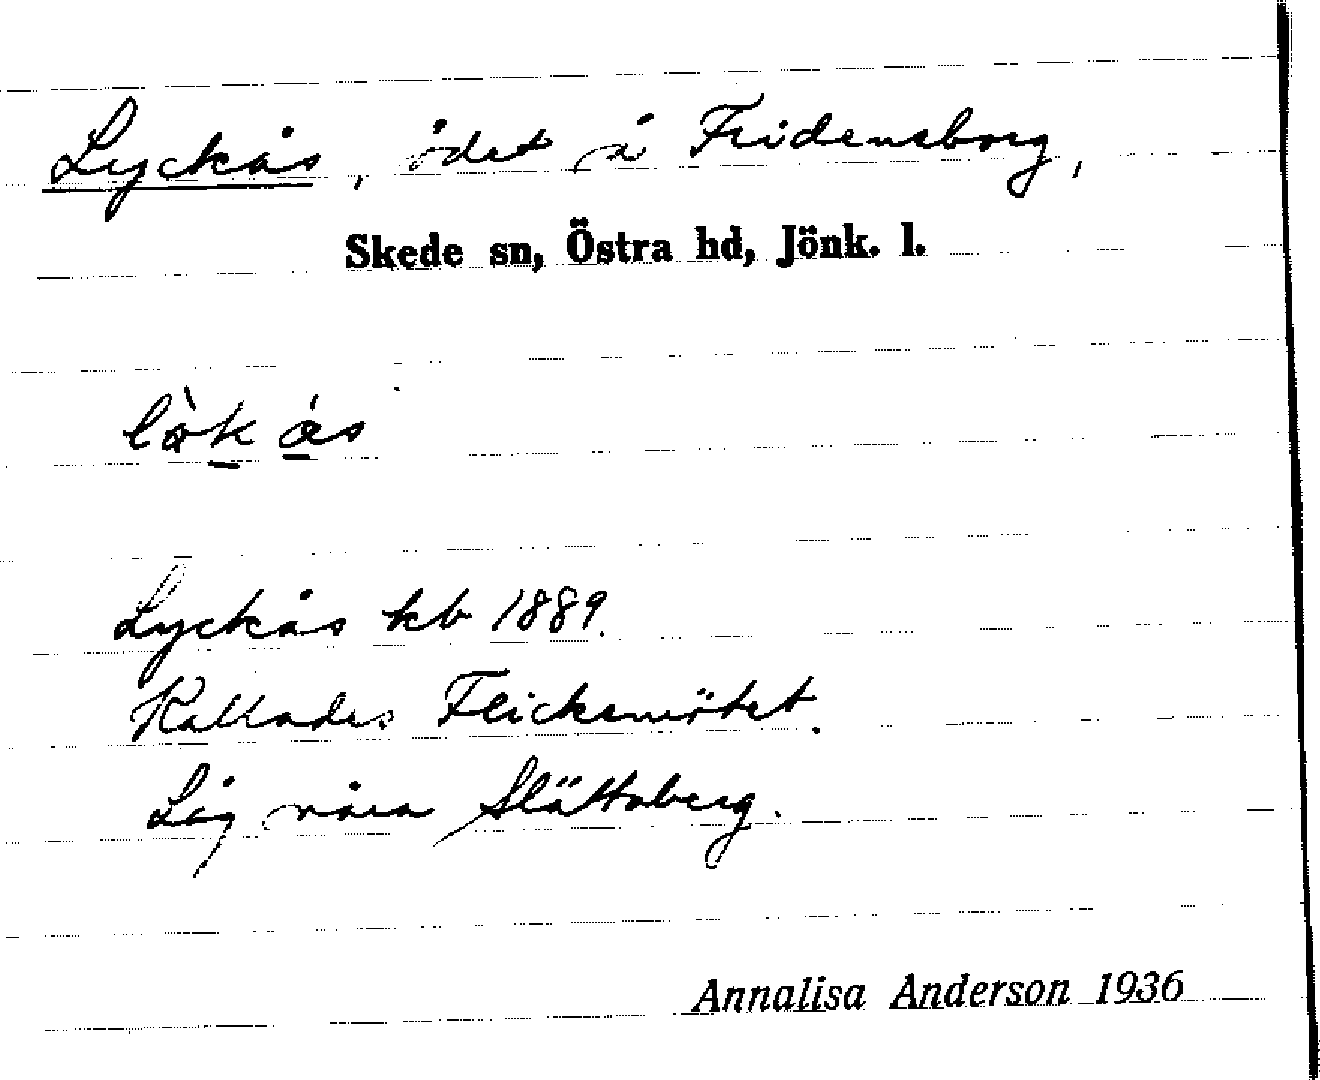 Lyckås, ödet å Fridensborg,
Skede sn, Östra hd, Jönk. l.
Lyckås kb 1889.
Kallades Flickemötet.
Låg nära Slättaberg.
Annalisa Anderson 1936